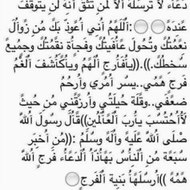 دعاء لا ترسله الا لمن تثق انه لن يتوقف
عنده:اللهم أني أعوذ بك من زوال
نعمتك وتحول عافيتك وفجأة نقمتك وجميع
سخطك.)).((يافارج الهم وياكاشف الغم
فرج همي.يسر أمري وأرحم
ضعفي.وقلة حيلتي وأرزقني من حيث
لاأحتسب يارب العالمين((قال رسول الله
صلى الله عليه وآله وسلم:((من أخبر
سبعة من الناس بهاذا الدعاء فرج الله
همه))أرسلها بنية الفرج